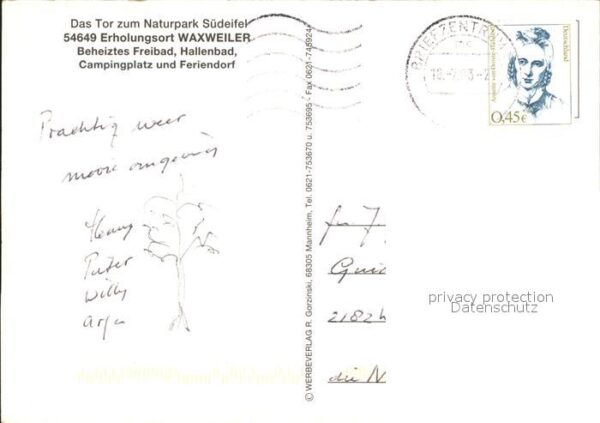 Das Tor zum Naturpark Südeifel
54649 Erholungsort WAXWEILER
Beheiztes Freibad, Hallenbad,
Campingplatz und Feriendorf
Prachtig weer
mooie omgeving
Henny
Peter
Willy
© WERBEVERLAG R. Gorzinski, 68305 Mannheim, Tel. 0621-753670 u. 753695 - Fax 0621-745924
BRIEFZENTRUM
Deutschland
0,45€
2182
die N
privacy protection
Datenschutz